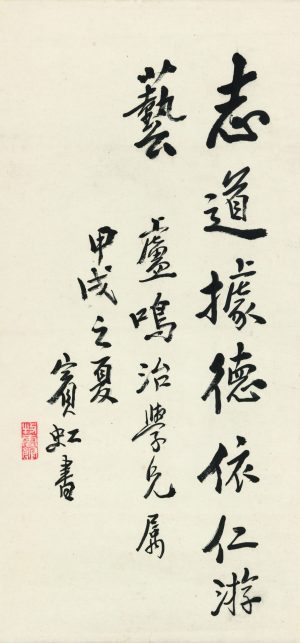 志道據德依仁游
藝
盧鳴治學兄屬
甲戌之夏
賓虹書